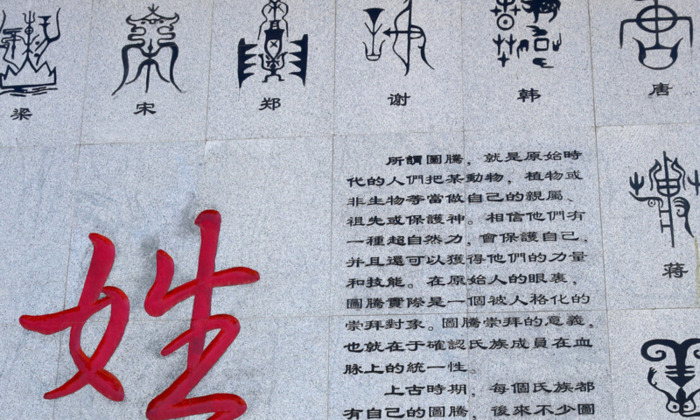 梁 宋 郑 谢 韩 唐
蒋
姓
所謂圖騰，就是原始時
代的人們把某動物，植物或
非生物等當做自己的親屬、
祖先或保護神。相信他們有
一種超自然力，會保護自己，
并且還可以獲得他們的力量
和技能。在原始人的眼裏，
圖騰實際是一個被人格化的
崇拜對象。圖騰崇拜的意義，
也就在于確認氏族成員在血
脉上的統一性。
上古時期，每個氏族都
有自己的圖騰，後來不少圖